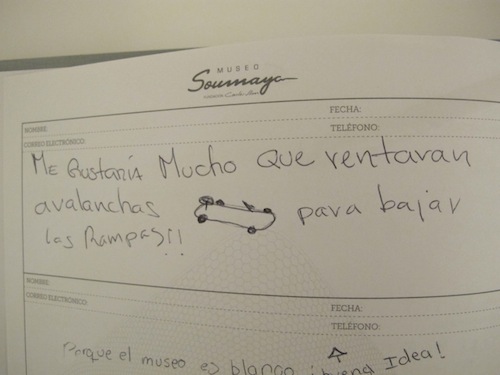 MUSEO
Soumaya
FECHA:
NOMBRE:
TELÉFONO:
CORREO ELECTRÓNICO:
ME GustaríA Mucho que rentaran
avalanchas para bajar
las Rampas!!
NOMBRE:
FECHA:
CORREO ELECTRÓNICO:
TELÉFONO:
Porque el museo es blanco ¡buena Idea!